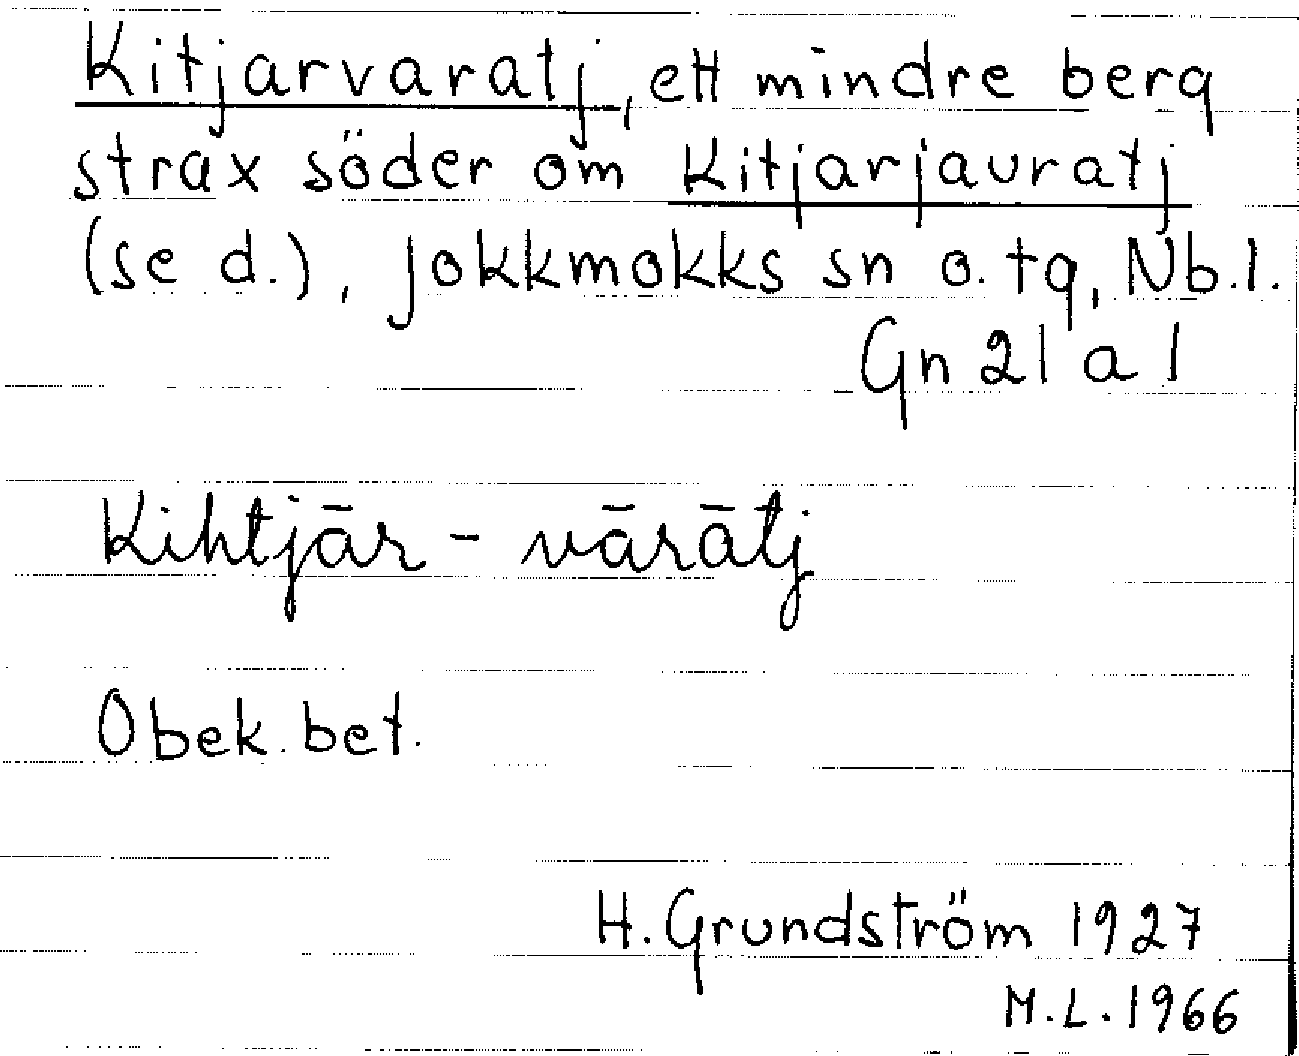 Kitjarvaratj, ett mindre berg
strax söder om Kitjarjauratj
(se d.), Jokkmokks sn o. tg, Nb. l.
Gn 21 a 1
Kihtjār - vārātj
Obek. bet.
H. Grundström 1927
M.L. 1966